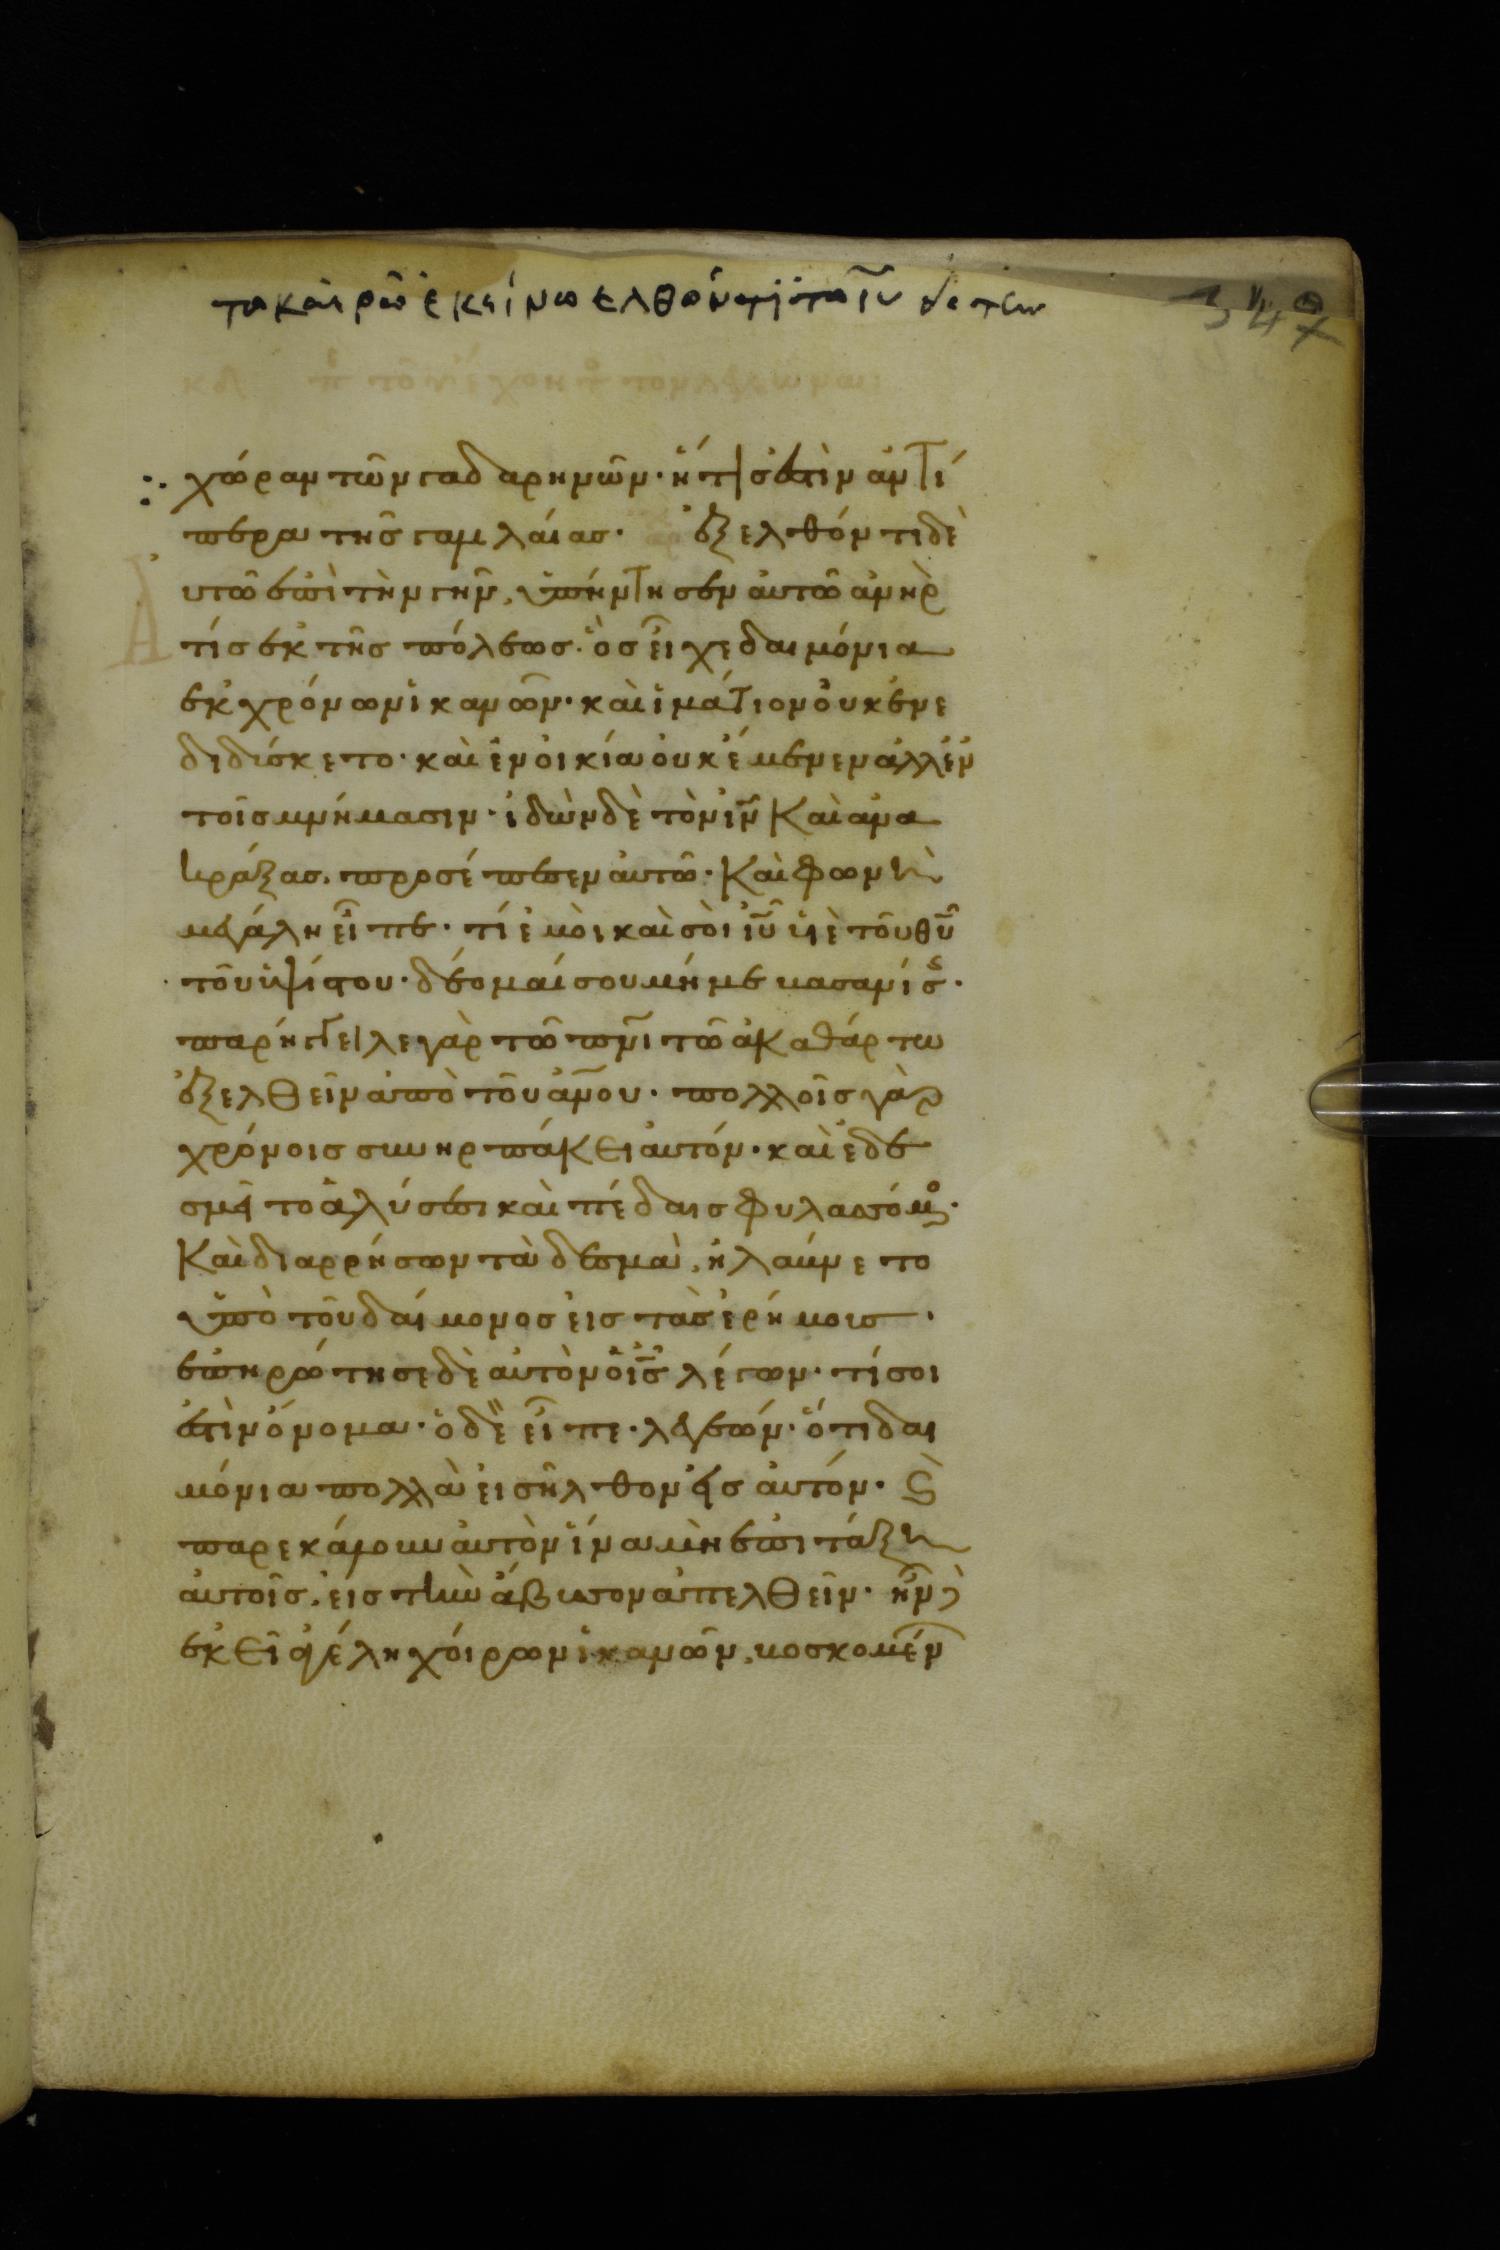 τω καιρῶ ἐκείνω ελθόντι τω ιυ εις την
347
χώραν τῶν γαδαρηνῶν· ἥτις ἐστὶν ἀντι
πέρα τῆς γαλιλαίας· ἐξελθόντι δὲ
αὐτῶ ἐπὶ τὴν γῆν, ὑπήντησεν αὐτῶ ἀνήρ
τίς ἐκ τῆς πόλεως· ὃς εἶχε δαιμόνια
ἐκ χρόνων ἱκανῶν· καὶ ἱμάτιον οὐκ ἐνε
διδύσκετο· καὶ ἐν οἰκία οὐκ ἔμενεν ἀλλ' ἐν
τοῖς μνήμασιν· ἰδὼν δὲ τὸν ιν καὶ ἀνα
κράξας, προσέπεσεν αὐτῶ· καὶ φωνῆ
μεγάλη εἶπε· τί ἐμοὶ καὶ σοὶ ιυ υἱὲ τοῦ θυ
τοῦ ὑψίστου· δέομαί σου μή με βασανίσης·
παρήγγειλε γὰρ τῶ πνι τῶ ἀκαθάρτω
ἐξελθεῖν ἀπὸ τοῦ ανου· πολλοῖς γὰρ
χρόνοις συνηρπάκει αὐτόν· καὶ ἐδε
σμεῖτο ἁλύσεσι καὶ πέδαις φυλασσόμενος·
καὶ διαρρήσων τὰ δεσμὰ, ἠλαύνετο
ὑπὸ τοῦ δαίμονος εἰς τὰς ἐρήμους·
ἐπηρώτησε δὲ αὐτὸν ὁ ις λέγων· τί σοι
ἐστὶν ὄνομα· ὁ δὲ εἶπε· λεγεών· ὅτι δαι
μόνια πολλὰ εἰσῆλθον εἰς αὐτόν· καὶ
παρεκάλουν αὐτὸν ἵνα μὴ ἐπιτάξη
αὐτοῖς, εἰς τὴν ἄβυσσον ἀπελθεῖν· ἦν δὲ
ἐκεῖ ἀγέλη χοίρων ἱκανῶν, βοσκομένων